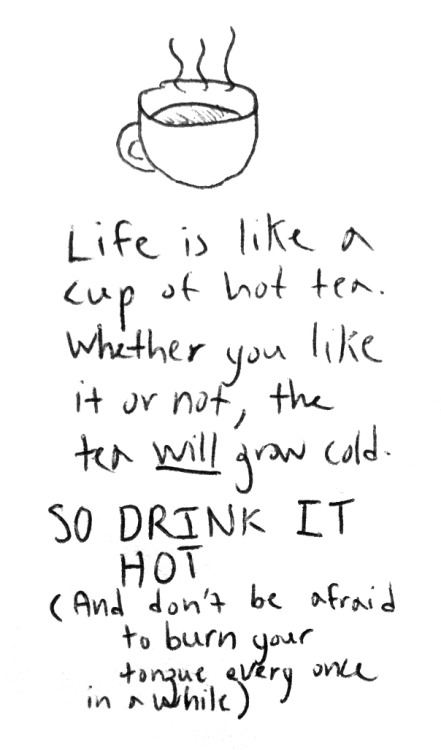 Life is like a
cup of hot tea.
Whether you like
it or not, the
tea will grow cold.
SO DRINK IT
HOT
(And don't be afraid
to burn your
tongue every once
in a while)